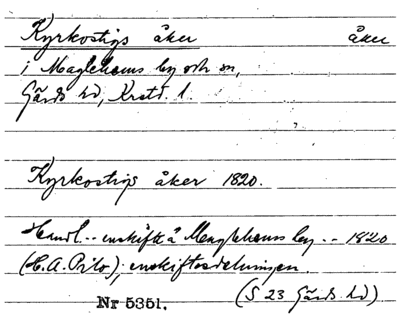 Kyrkostigs åker åker
i Maglehems by och sn,
Gärds hd, Krstd. l.
Kyrkostigs åker 1820.
Handl... enskifte å Maglehems by... 1820
(H. A. Pilo); enskiftesdelningen.
Nr 5351. (S 23 Gärds hd)